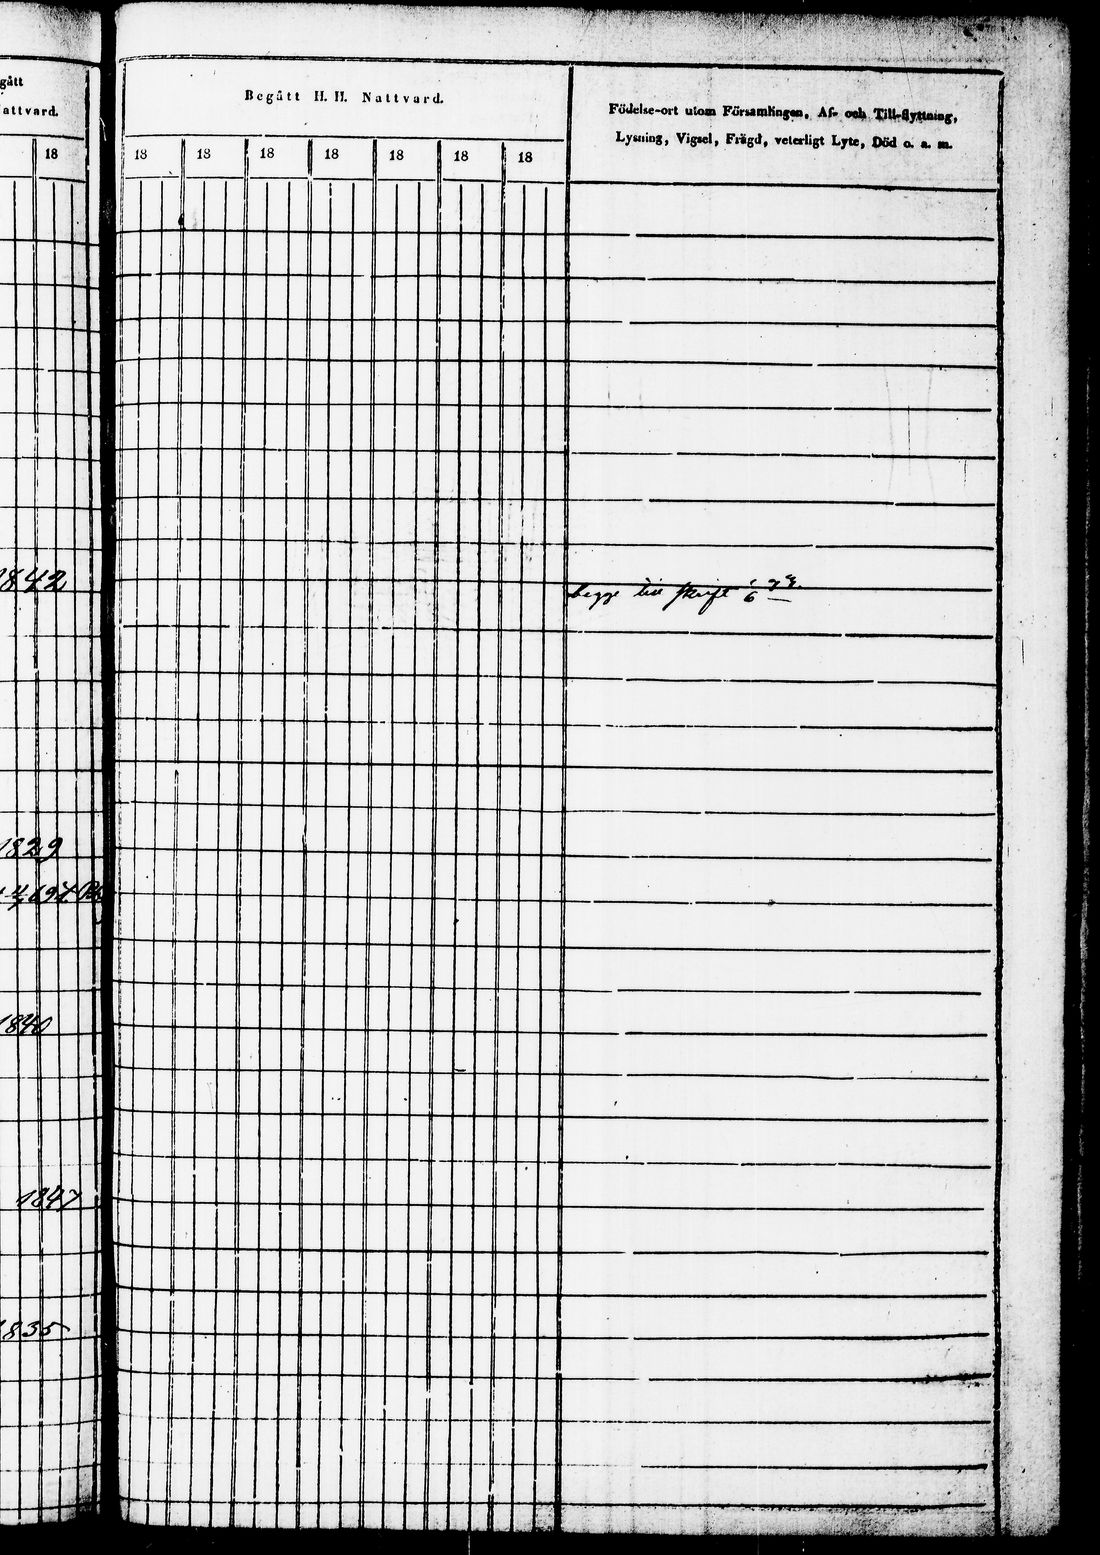 gått
attvard.
18
Begått H. H. Nattvard.
18 18 18 18 18 18 18
Födelse-ort utom Församlingen, Af- och Till-flyttning,
Lysning, Vigsel, Frägd, veterligt Lyte, Död o. a. m.
1842
begge till skrift
1829
1840
1847
1835